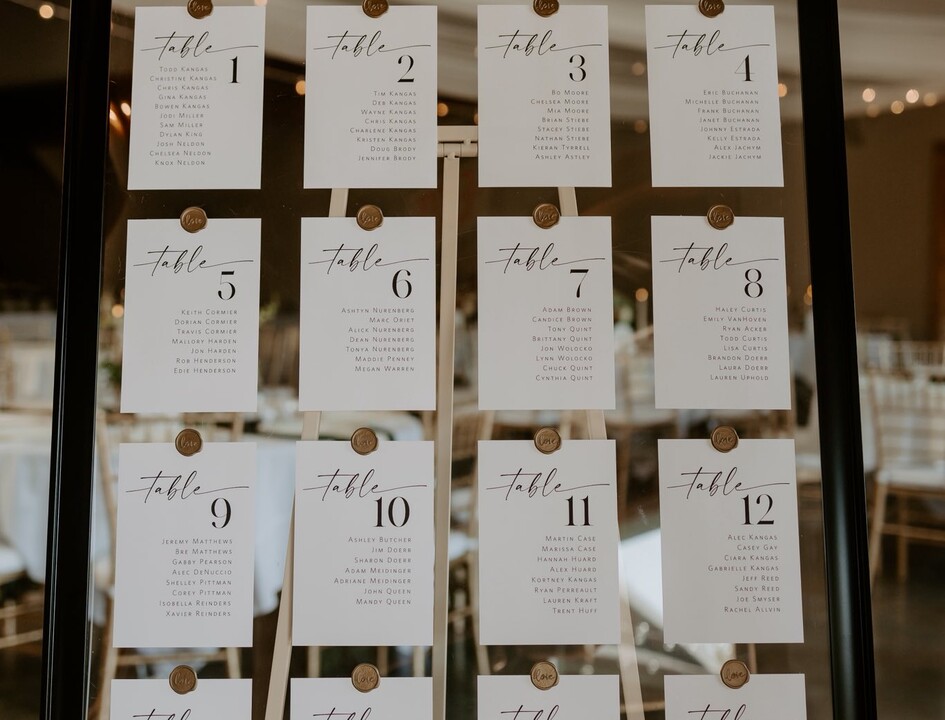 love
love
love
love
Table 1
TODD KANGAS
CHRISTINE KANGAS
CHRIS KANGAS
GINA KANGAS
BOWEN KANGAS
JODI MILLER
SAM MILLER
DYLAN KING
JOSH NELDON
CHELSEA NELDON
KNOX NELDON
Table 2
TIM KANGAS
DEB KANGAS
WAYNE KANGAS
CHRIS KANGAS
CHARLENE KANGAS
KRISTEN KANGAS
DOUG BRODY
JENNIFER BRODY
Table 3
BO MOORE
CHELSEA MOORE
MIA MOORE
BRIAN STIEBE
STACEY STIEBE
NATHAN STIEBE
KIERAN TYRRELL
ASHLEY ASTLEY
Table 4
ERIC BUCHANAN
MICHELLE BUCHANAN
FRANK BUCHANAN
JANET BUCHANAN
JOHNNY ESTRADA
KELLY ESTRADA
ALEX JACHYM
JACKIE JACHYM
love
love
love
love
Table 5
KEITH CORMIER
DORIAN CORMIER
TRAVIS CORMIER
MALLORY HARDEN
JON HARDEN
ROB HENDERSON
EDIE HENDERSON
Table 6
ASHTYN NURENBERG
MARC ORIET
ALICE NURENBERG
DEAN NURENBERG
TONYA NURENBERG
MADDIE PENNEY
MEGAN WARREN
Table 7
ADAM BROWN
CANDICE BROWN
TONY QUINT
BRITTANY QUINT
JON WOLOCKO
LYNN WOLOCKO
CHUCK QUINT
CYNTHIA QUINT
Table 8
HALEY CURTIS
EMILY VANHOVEN
RYAN ACKER
TODD CURTIS
LISA CURTIS
BRANDON DOERR
LAURA DOERR
LAUREN UPHOLD
love
love
love
love
Table 9
JEREMY MATTHEWS
BRE MATTHEWS
GABBY PEARSON
ALEC DENUCCIO
SHELLEY PITTMAN
COREY PITTMAN
ISOBELLA REINDERS
XAVIER REINDERS
Table 10
ASHLEY BUTCHER
JIM DOERR
SHARON DOERR
ADAM MEIDINGER
ADRIANE MEIDINGER
JOHN QUEEN
MANDY QUEEN
Table 11
MARTIN CASE
MARISSA CASE
HANNAH HUARD
ALEX HUARD
KORTNEY KANGAS
RYAN PERREAULT
LAUREN KRAFT
TRENT HUFF
Table 12
ALEC KANGAS
CASEY GAY
CIARA KANGAS
GABRIELLE KANGAS
JEFF REED
SANDY REED
JOE SMYSER
RACHEL ALLVIN
love
love
love
love
Table
Table
Table
Table